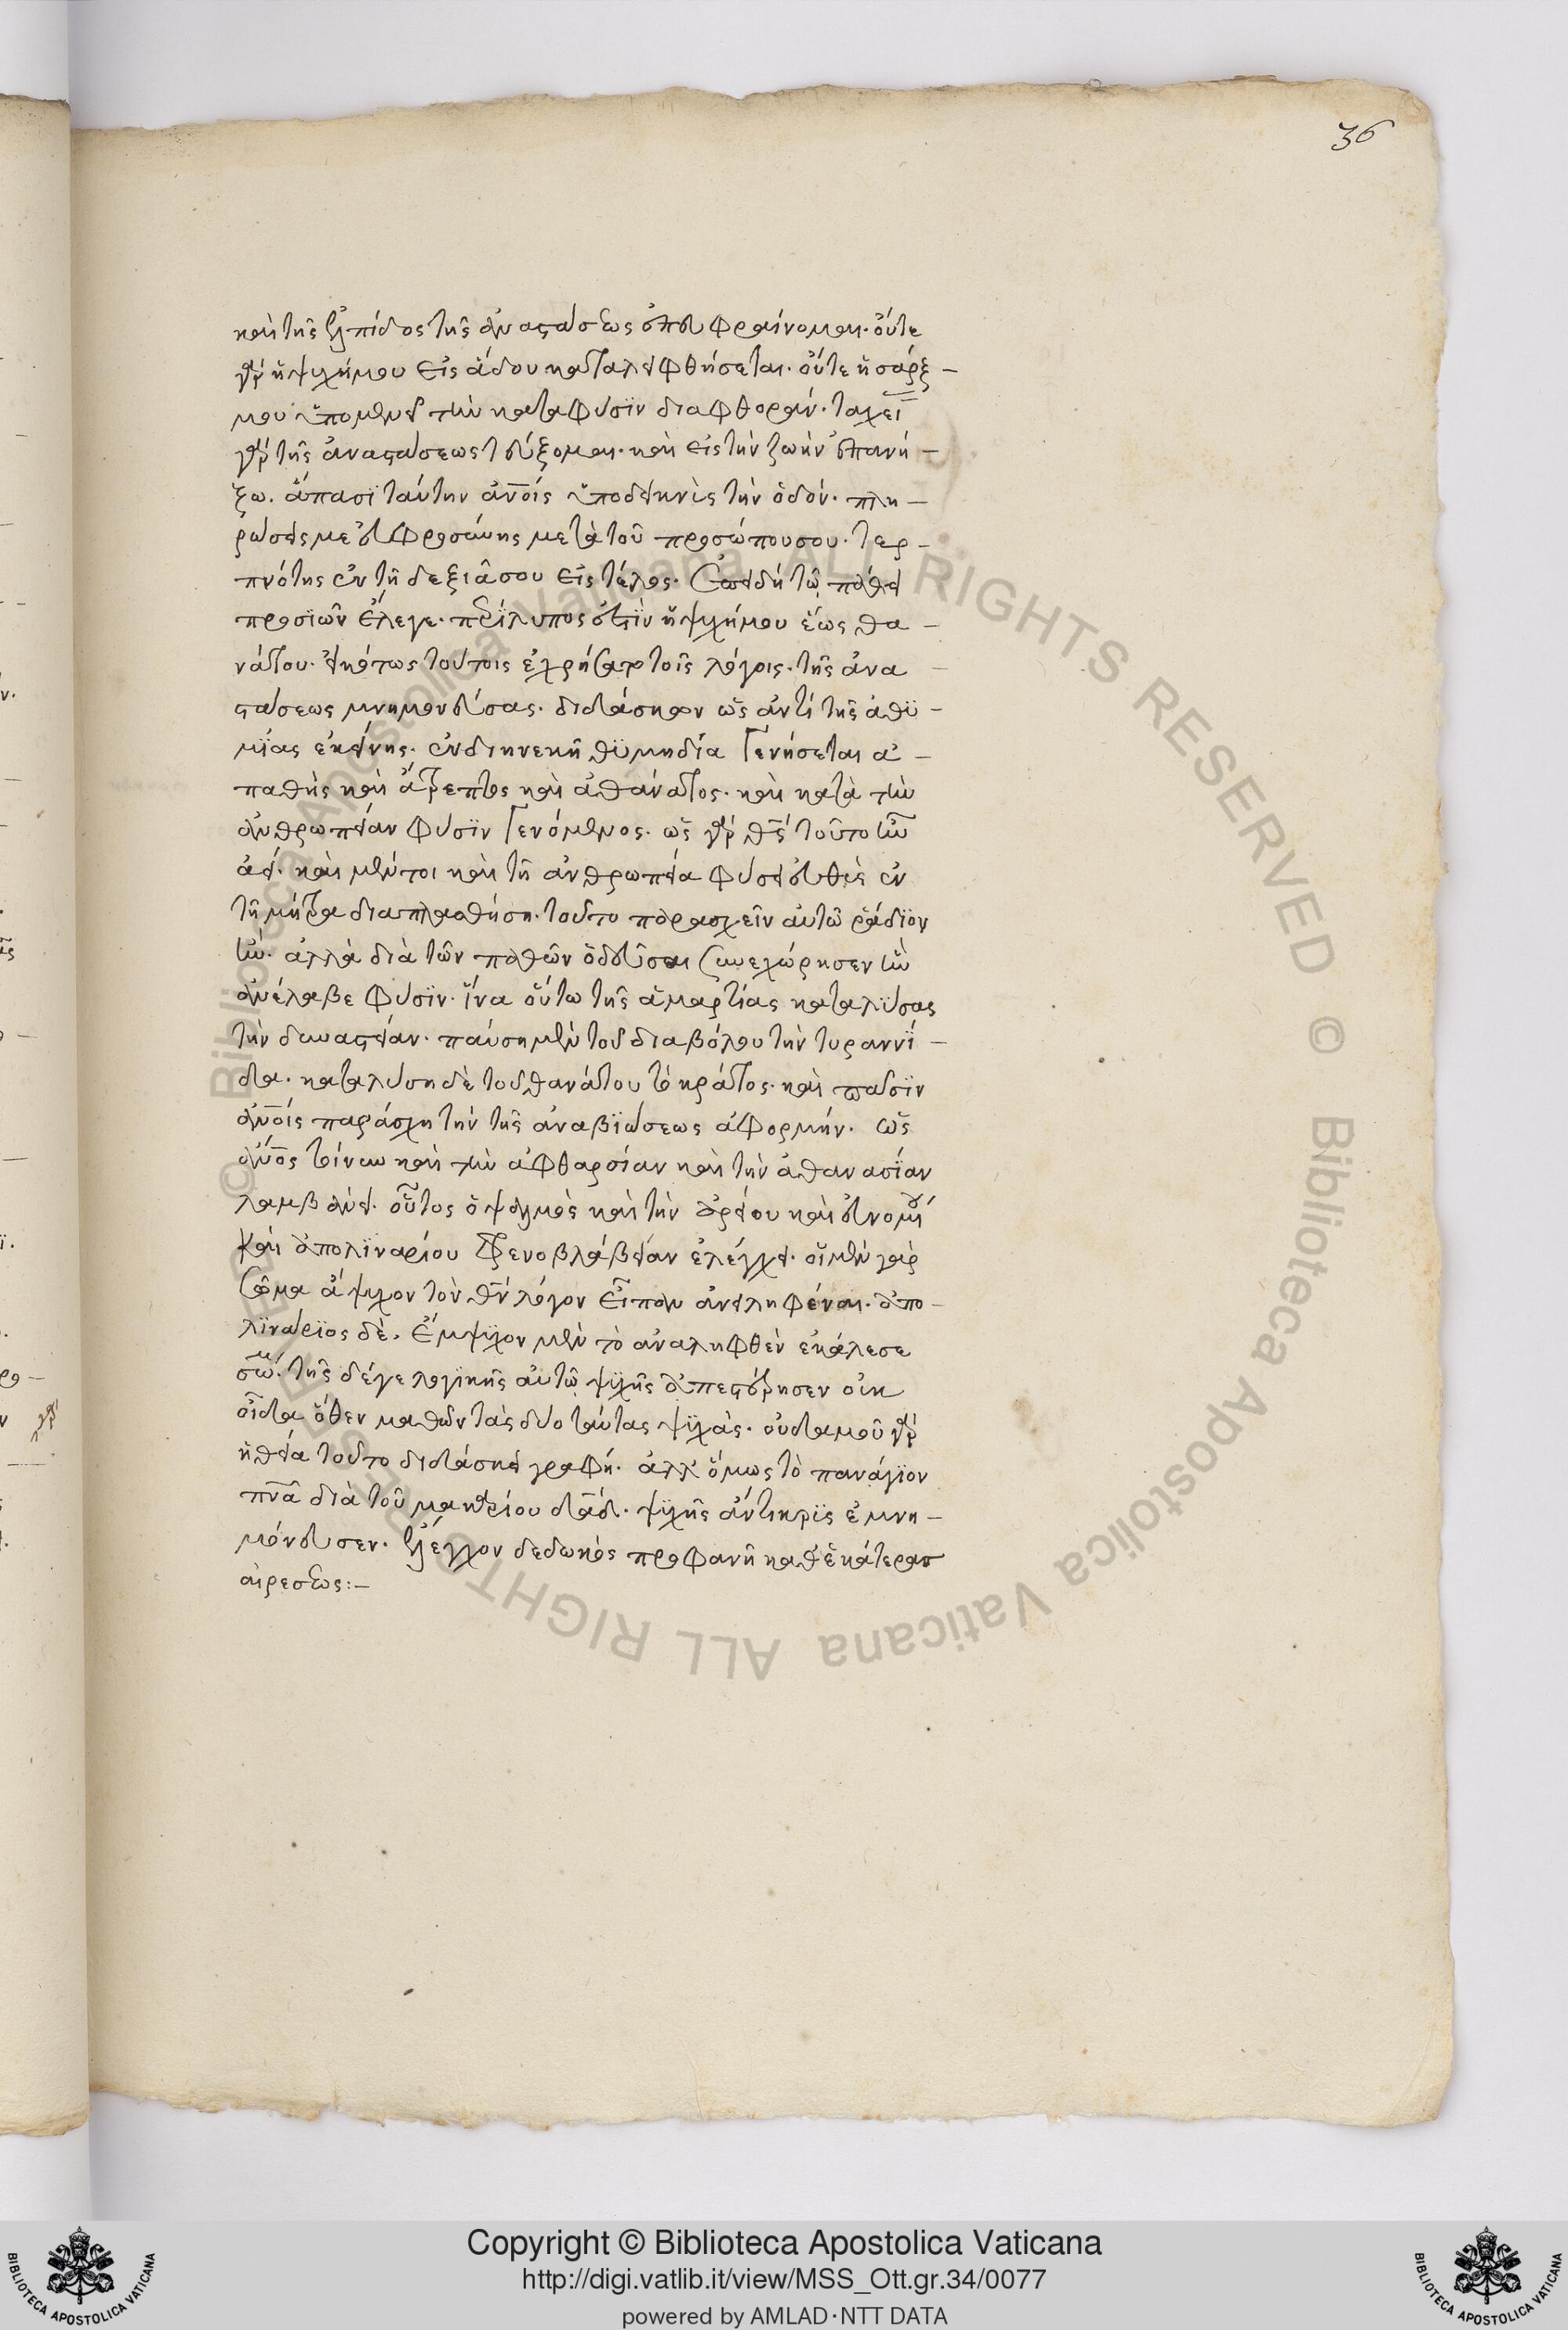 36
καὶ τῆς ἐλπίδος τῆς ἀναστάσεως ἐπευφραίνομαι· οὔτε
γὰρ ἡ ψυχή μου εἰς ἅδου καταλειφθήσεται· οὔτε ἡ σάρξ –
μου ὑπομένει τὴν κατα φύσϊν διαφθοράν· ταχεῖ
γὰρ τῆς ἀναστάσεως τεύξομαι· καὶ εἰς τὴν ζωὴν ἐπανή –
ξω. ἅπασϊ ταύτην ἀν̅οις ὑποδεικνὺς τὴν ὁδόν· πλη –
ρώσεις με εὐφροσύνης μετὰ τοῦ προσώπου σου· τερ –
πνότης ἐν τῇ δεξιᾶ σου εἰς τέλος· ἐπειδὴ τῶ πάθει
προσϊὼν ἔλεγε· περίλυπος ἐστϊν ἡ ψυχή μου ἕως θα –
νάτου· εἰκότως τούτοις ἐχρήσατο τοῖς λόγοις· τῆς ἀνα –
στάσεως μνημονεύσας· διδάσκων ὡς ἀντὶ τῆς ἀθϋ –
μΐας ἐκείνης· ἐν διηνεκῆ θϋμηδία γενήσεται ἀ –
παθὴς καὶ ἄτρεπτος καὶ ἀθάνατος· καὶ κατὰ τὴν
ἀνθρωπείαν φύσϊν γενόμενος· ὡς γὰρ θς̅ τοῦτο ἦν
ἀεί· καὶ μέντοι καὶ τῆ ἀνθρωπεία φύσει εὐθὺς ἐν
τῆ μήτρα διαπλασθήση· τοῦτο παρασχεῖν αὐτῶ ῥάδϊον
ἦν· ἀλλὰ διὰ τῶν παθῶν ὁδεῦσαι συνεχώρησεν ἣν
ἀνέλαβε φύσϊν· ἵνα οὕτω τῆς ἁμαρτίας καταλύσας
τὴν δυναστείαν· παύση μὲν τοῦ διαβόλου τὴν τυραννΐ –
δα· καταλύση δὲ τοῦ θανάτου τὸ κράτος· καὶ πᾶσϊν
ἀν̅οις παράσχη τὴν τῆς ἀναβϊώσεως ἀφορμήν· ὡς
ἀν̅ος τοίνυν καὶ τὴν ἀφθαρσίαν καὶ τὴν ἀθανασίαν
λαμβάνει· οὗτος ὁ ψαλμὸς καὶ τὴν ἀρείου καὶ εὐνομίου
καὶ ἀπολϊναρίου φρενοβλάβειαν ἐλέγχει· οἱ μὲν γὰρ
σῶμα ἄψυχον τὸν θν̅ λόγον εἶπον ἀνειληφέναι· ἀπο –
λϊνάρϊος δὲ, ἔμψϋχον μὲν τὸ ἀναληφθὲν ἐκάλεσε
σῶμ· τῆς δέ γε λογϊκῆς αὐτῶ ψϋχῆς ἀπεστέρησεν οὐκ
οἶδα ὅθεν μαθὼν τὰς δυο ταύτας ψϋχὰς· οὐδαμοῦ γὰρ
ἡ θεία τοῦτο διδάσκει γραφή· ἀλλ' ὅμως τὸ πανάγϊον
πν̅α διὰ τοῦ μακαρίου δα̅δ· ψϋχῆς ἄντικρϋς ἐμνη –
μόνευσεν· ἔλεγχον δεδωκὸς προφανῆ καθ' ἑκατέρας
αἱρεσεως:–
Copyright © Biblioteca Apostolica Vaticana
http://digi.vatlib.it/view/MSS_Ott.gr.34/0077
powered by AMLAD·NTT DATA